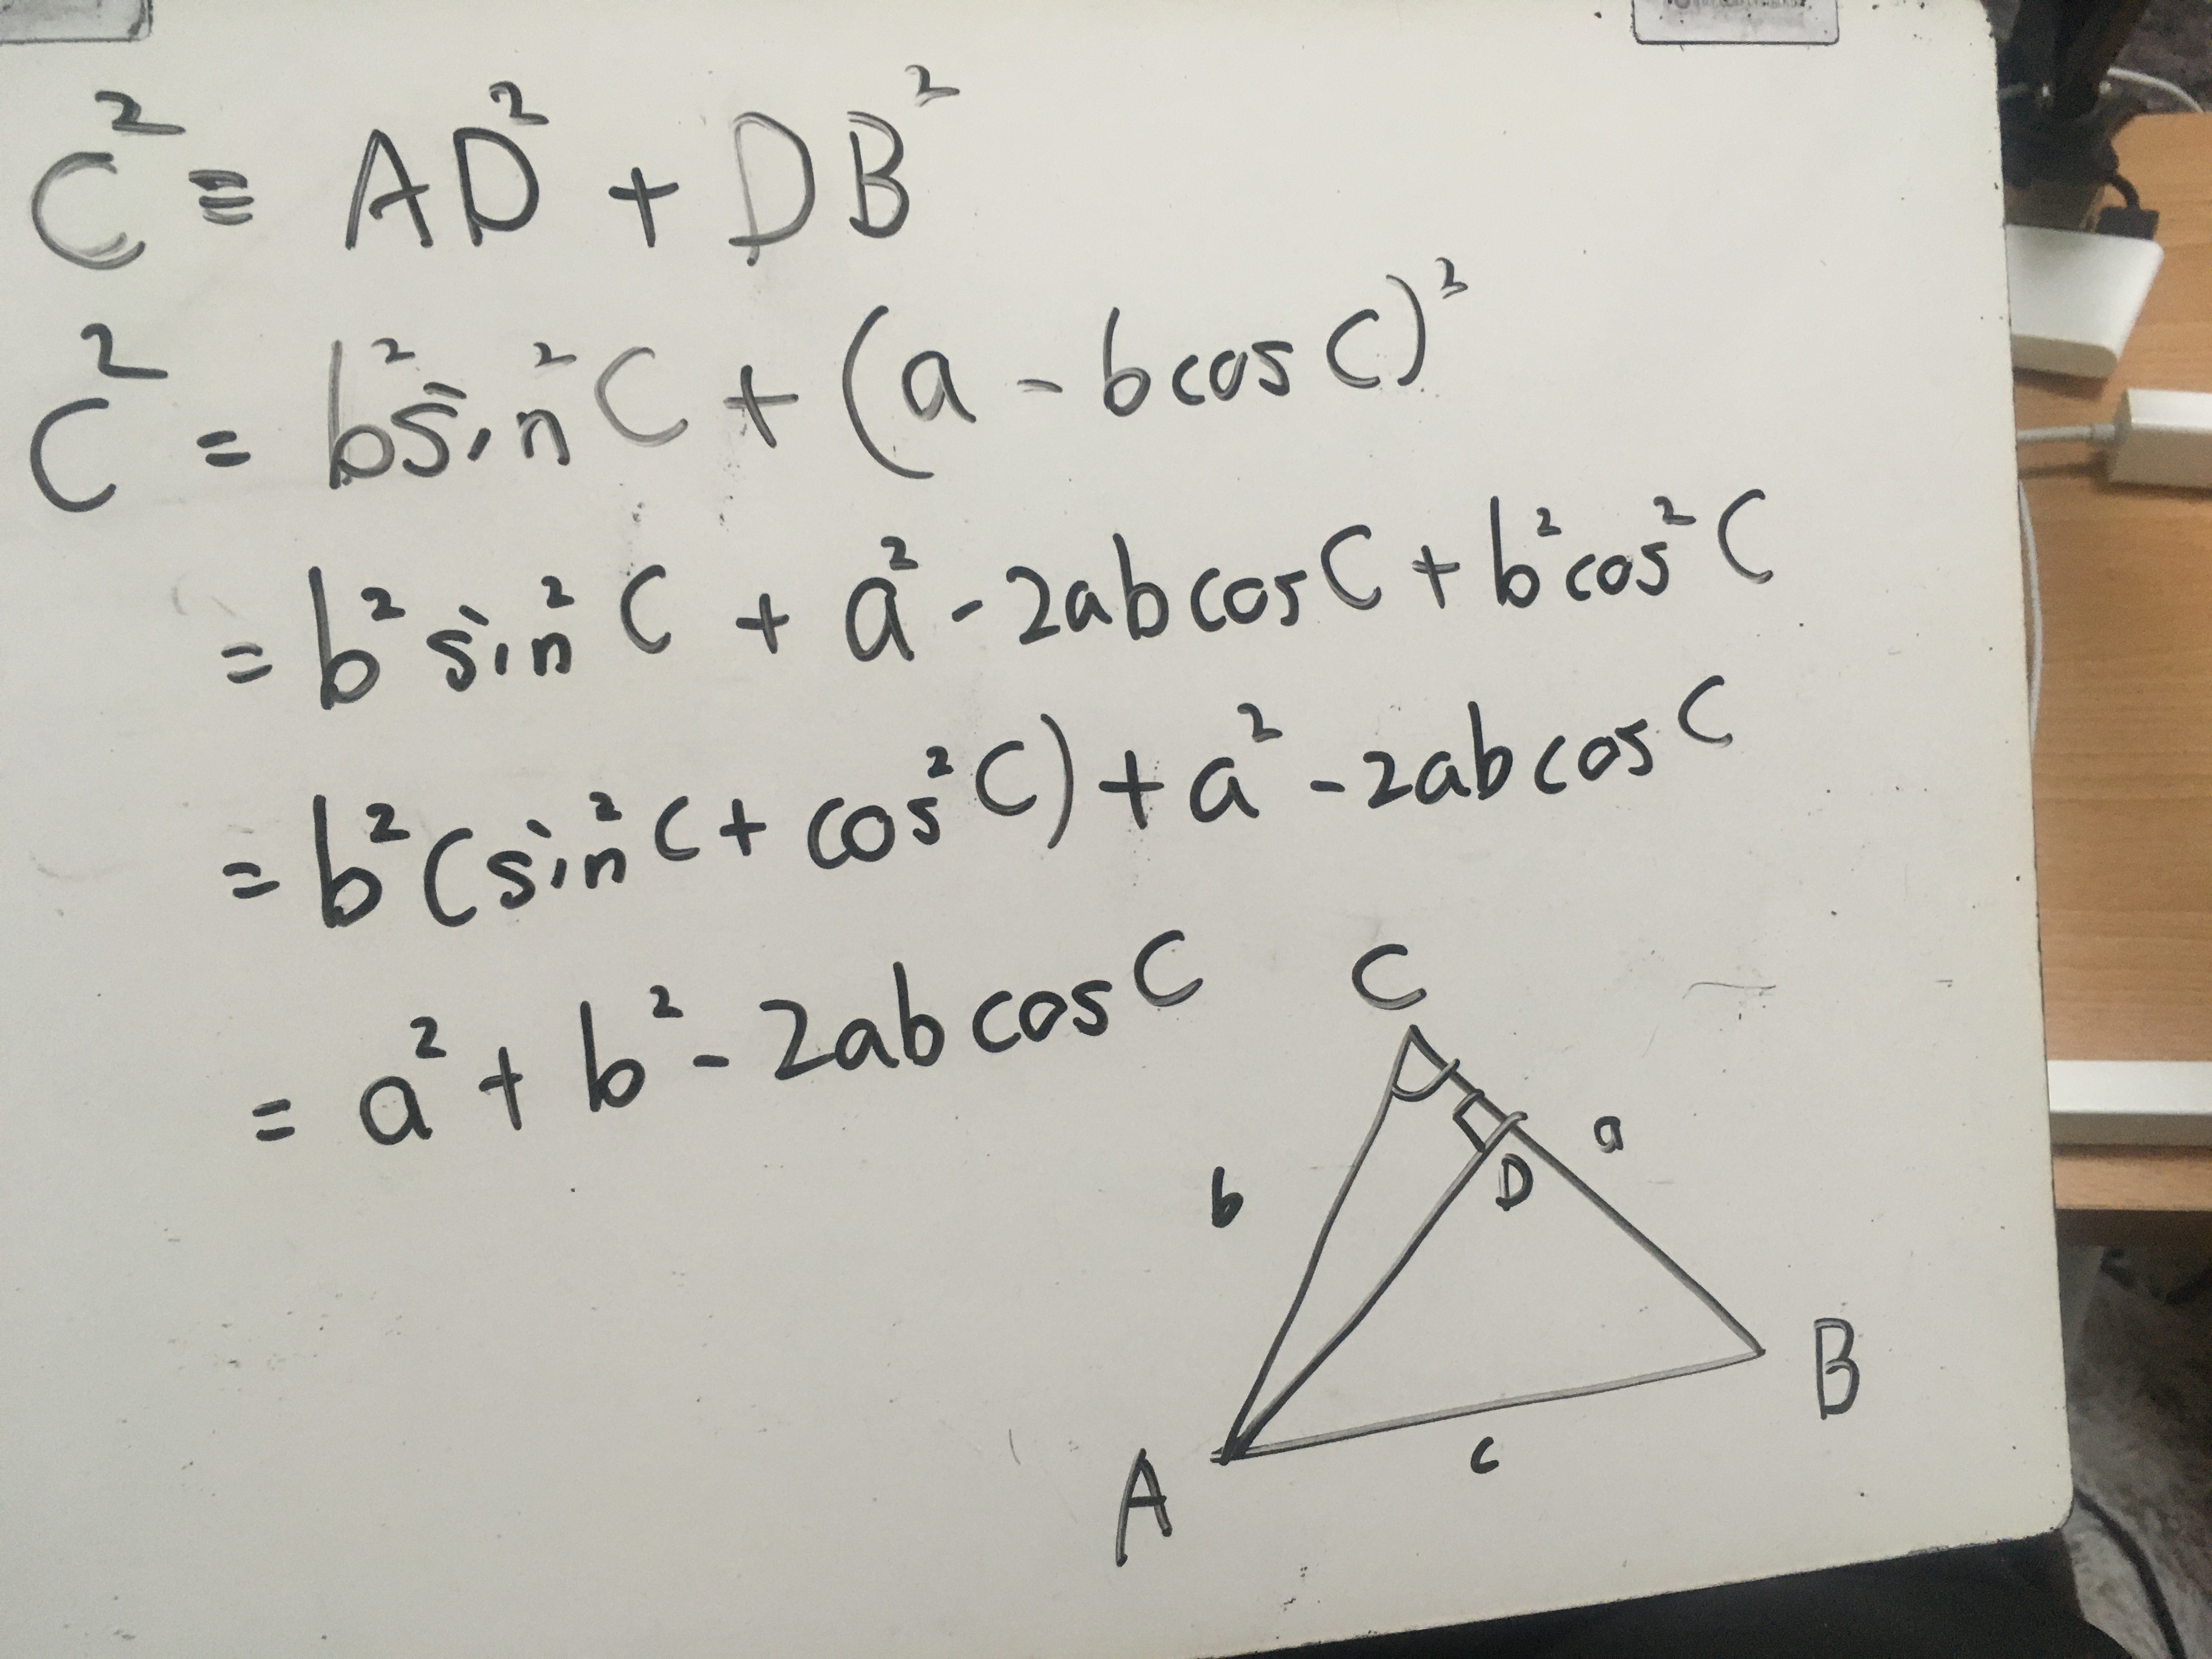 c² = AD² + DB²
c² = b²sin²C + (a - bcosC)²
= b² sin²C + a² - 2abcosC + b²cos²C
= b²(sin²C + cos²C) + a² - 2abcosC
= a² + b² - 2abcosC
C
a
b
D
B
c
A